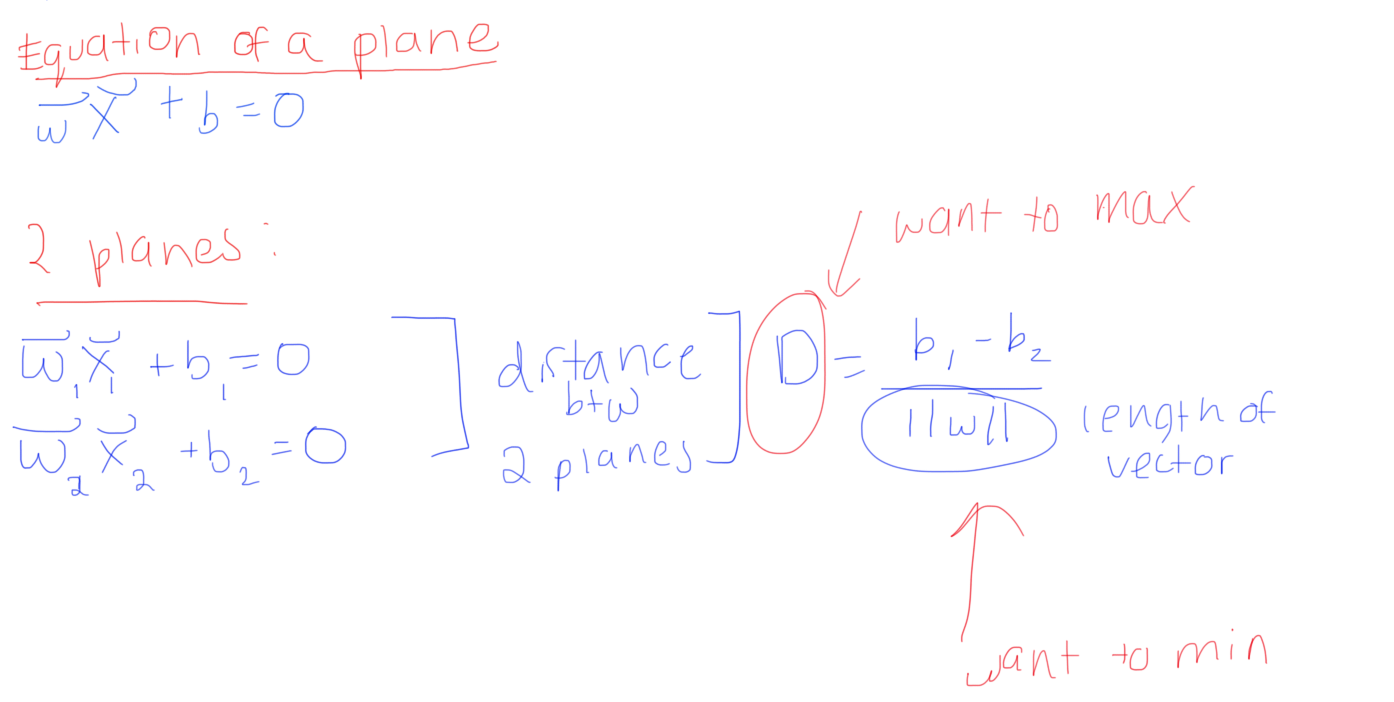 Equation of a plane
w⃗ x⃗ + b = 0
2 planes:
want to max
w⃗₁ x⃗₁ + b₁ = 0
w⃗₂ x⃗₂ + b₂ = 0
distance
btw
2 planes
D = b₁ - b₂ / ||w||
length of
vector
want to min